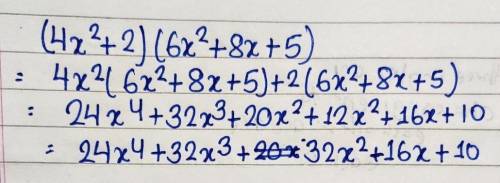 (4x²+2)(6x²+8x+5)
= 4x²(6x²+8x+5)+2(6x²+8x+5)
= 24x⁴+32x³+20x²+12x²+16x+10
= 24x⁴+32x³+32x²+16x+10